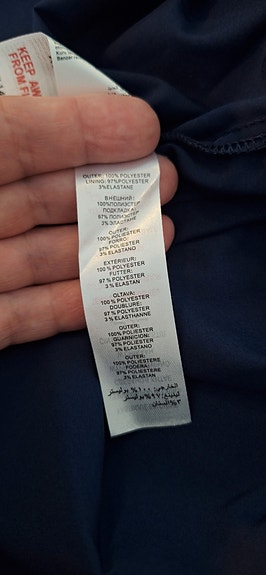 KEEP AW
FROM FI
OUTER: 100% POLYESTER
LINING: 97% POLYESTER
3% ELASTANE
ВНЕШНИЙ:
100% ПОЛИЭСТЕР
ПОДКЛАДКА:
97% ПОЛИЭСТЕР
3% ЭЛАСТАНЕ
OUTER:
100% POLIESTER
FORRO:
97% POLIESTER
3% ELASTANO
EXTÉRIEUR:
100% POLYESTER
FUTTER:
97% POLYESTER
3% ELASTAN
OLTAVA:
100% POLYESTER
DOUBLURE:
97% POLYESTER
3% ELASTHANNE
OUTER:
100% POLIESTER
GUARNICION:
97% POLIESTER
3% ELASTANO
OUTER:
100% POLIESTERE
FODERA:
97% POLIESTERE
3% ELASTANE
الخارجي: ١٠٠% بوليستر
٩٧% بوليستر
٣% اليستان